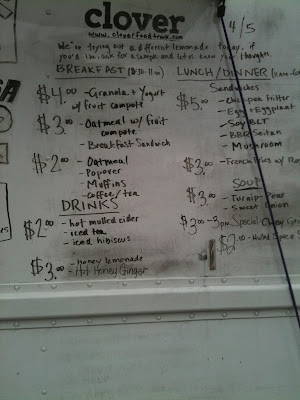 clover
www.cloverfoodtruck.com
4/5
We're trying out a different lemonade today, if
you'd like, ask for a sample, and let us know your thoughts.
BREAKFAST
$4.00 - Granola + Yogurt
w/ fruit compote
$3.00 - Oatmeal w/ fruit
compote
- Breakfast Sandwich
$2.00 - Oatmeal
- Popover
- Muffins
- Coffee/tea
DRINKS
$2.00 - hot mulled cider
- iced tea
- iced hibiscus
$3.00 - honey lemonade
- Hot Honey Ginger
LUNCH/DINNER
Sandwiches
$5.00 - Chickpea Fritter
- Egg + Eggplant
- Soy BLT
- BBQ Seitan
- Mushroom
$3.00 - French Fries w/
SOUP
$3.00 - Turnip-Pear
- Sweet Onion
$3.00 - 3pm Special